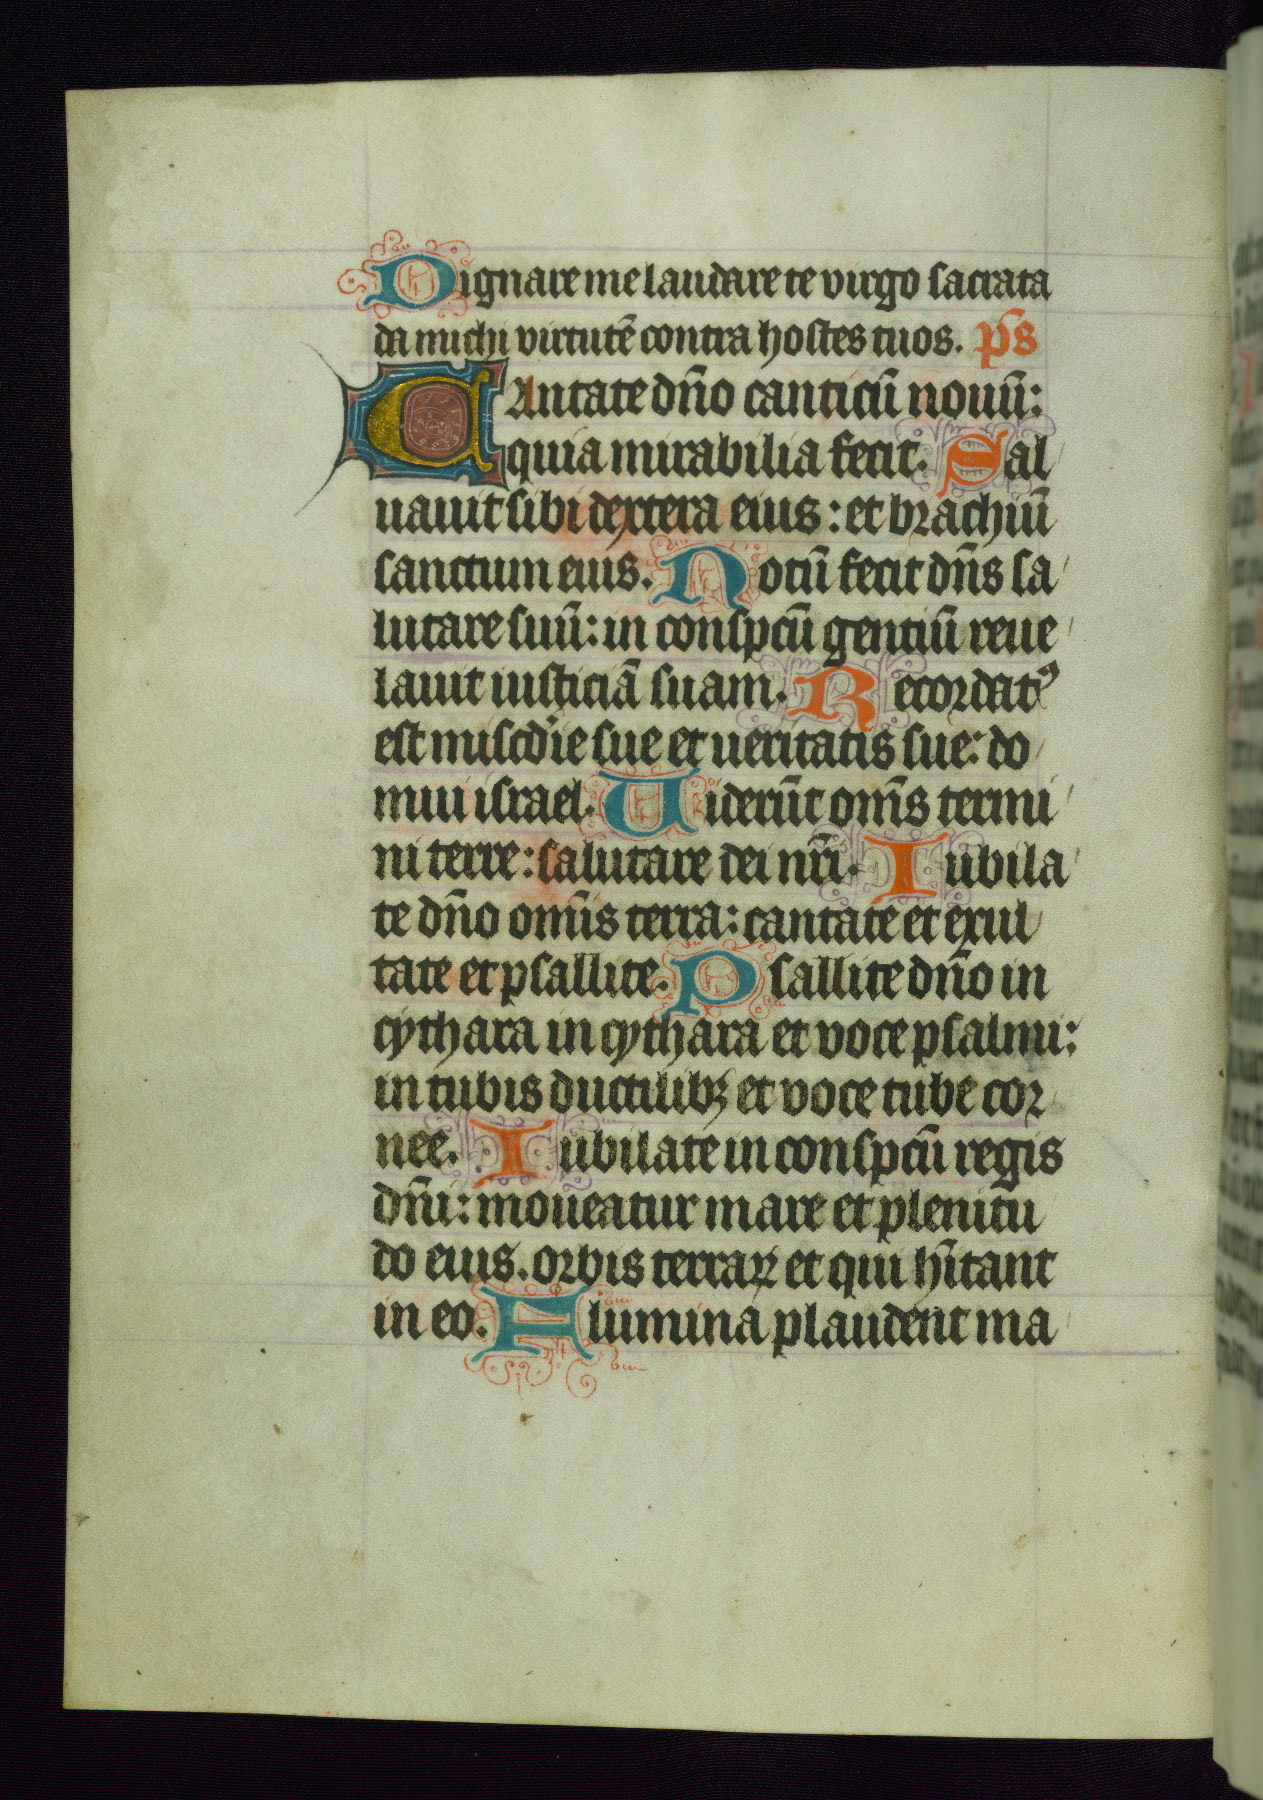 Dignare me laudare te virgo sacrata
da michi virtutē contra hostes tuos. p̄s
CAntate dn̄o canticū nouū:
quia mirabilia fecit. Sal
uauit sibi dextera eius: et brachiū
sanctum eius. Notū fecit dn̄s sa
lutare suū: in conspcū gentiū reue
lauit iusticiā suam. Recordatꝰ
est miscd̄ie sue et ueritatis sue: do
mui israel. Uiderūt om̄s termi
ni terre: salutare dei nr̄i. Iubila
te dn̄o omīs terra: cantate et exul
tate et psallite. Psallite dn̄o in
cythara in cythara et voce psalmi:
in tubis ductilibꝫ et voce tube cor
nee. Iubilate in conspcū regis
dn̄i: moueatur mare et plenitu
do eius. orbis terraꝝ et qui hītant
in eo. Flumina plaudent ma